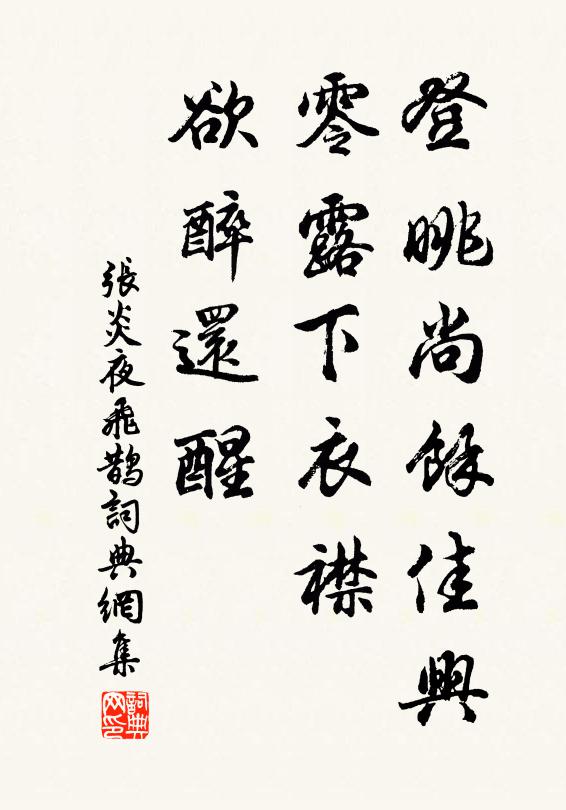 登眺尚餘佳興
零露下衣襟
欲醉還醒
張炎夜飛鵲詞典網集
詞典
网印